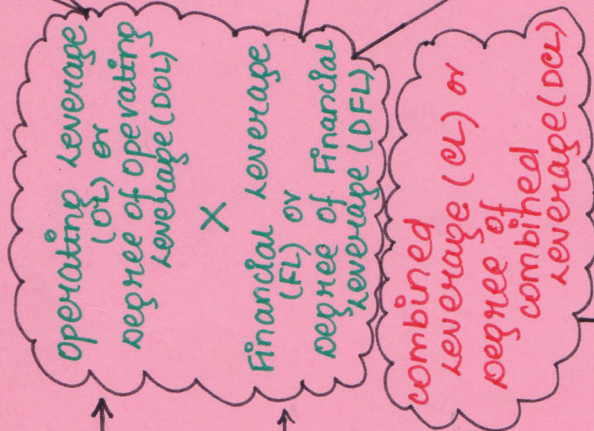 Operating Leverage
(OL) or
Degree of Operating
Leverage (DOL)
×
Financial Leverage
(FL) or
Degree of Financial
Leverage (DFL)
Combined
Leverage (CL) or
Degree of
Combined
Leverage (DCL)